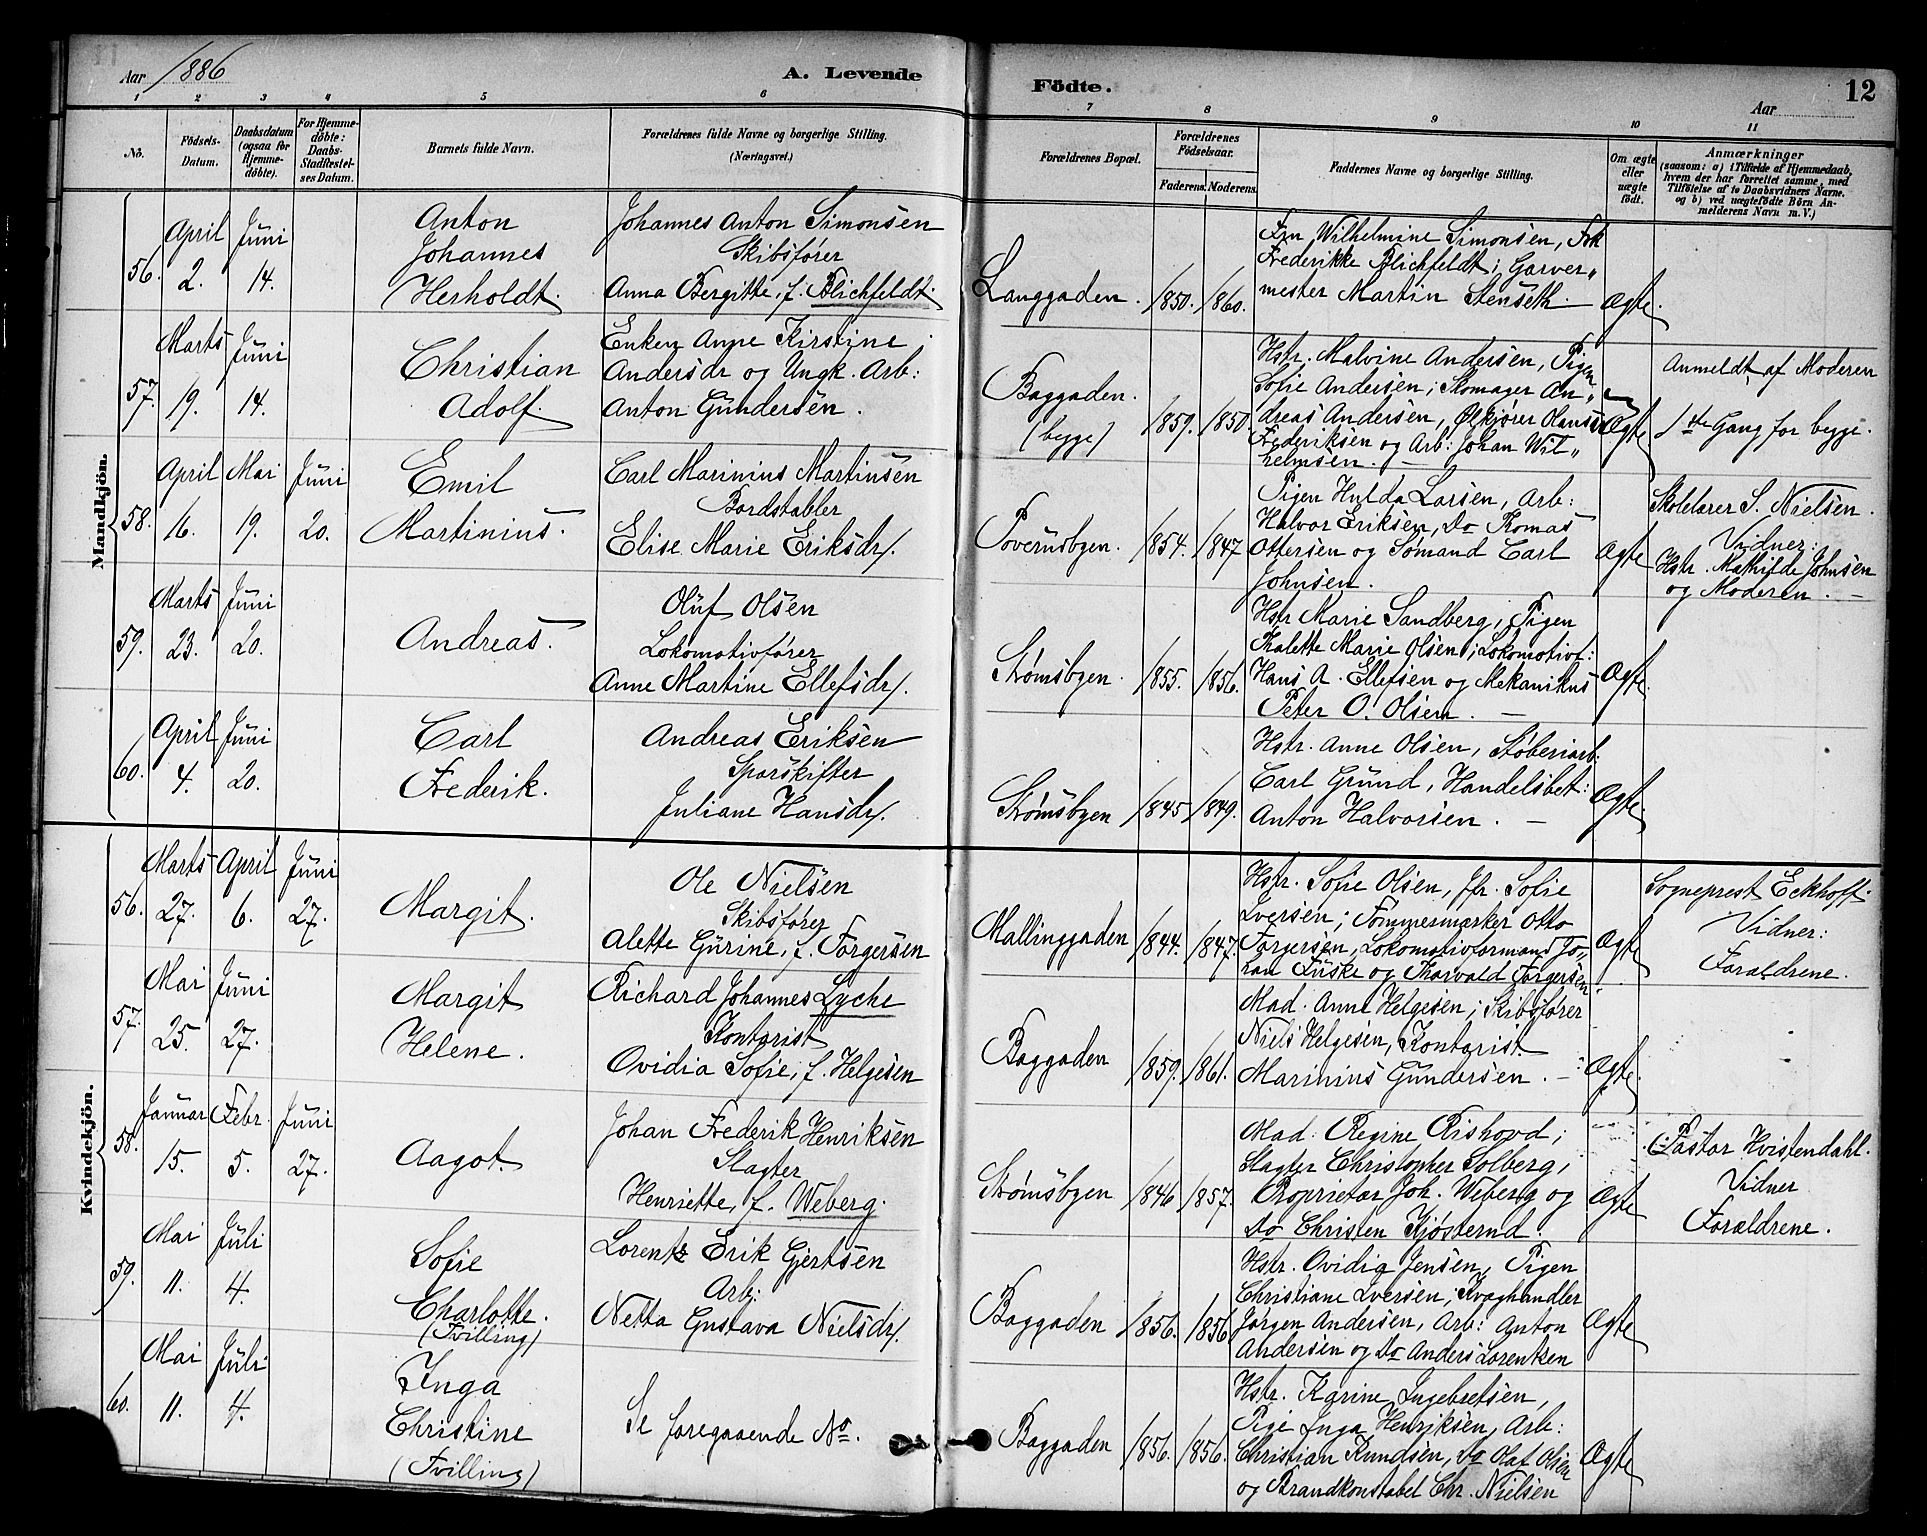 Aar 1886
A. Levende
Födte.
Aar
12
1 2 3 4 5 6 7 8 9 10 11
No.
Födsels-Datum.
Daabsdatum (ogsaa for Hjemmedöbte).
For Hjemmedöbte: Daabs-Stadfæstelses Datum.
Barnets fulde Navn.
Forældrenes fulde Navne og borgerlige Stilling. (Næringsvei.)
Forældrenes Bopæl.
Forældrenes Födselsaar.
Faderens. Moderens.
Faddernes Navne og borgerlige Stilling.
Om ægte eller uægte födt.
Anmærkninger
(saasom: a) i Tilfælde af Hjemmedaab,
hvem der har forrettet samme, med
Tilföielse af to Daabsvidners Navne.
og b) ved uægtefödte Börn Anmelderens Navn m. V.)
Mandkjön.
56. April 2. Juni 14.
Anton
Johannes
Herholdt.
Johannes Anton Simonsen
Skibsfører
Anna Bergitte, f. Blichfeldt.
Langgaden. 1850. 1860.
Fru Wilhelmine Simonsen, Frk
Frederikke Blichfeldt; Garver„
mester Martin Stenseth. —
Ægte.
57. Marts 19. Juni 14.
Christian
Adolf.
Enken Anne Kirstine
Andersdr og Ungk. Arb:
Anton Gundersen.
Baggaden.
(begge)
1859. 1850.
Hstr. Malvine Andersen, Pigen
Sofie Andersen; Skomager An„
dreas Andersen, Ølkjører Olaus
Frederiksen og Arb: Johan Wil„
helmsen. —
Ægte
Anmeldt af Moderen
1ste Gang for begge.
58. April 16. Mai 19. Juni 20.
Emil
Martinius.
Carl Marinius Martinsen
Bordstabler
Elise Marie Eriksdr/.
Poverusbyen. 1854. 1847
Pigen Hulda Larsen, Arb:
Halvor Eriksen, Do Thomas
Ottersen og Sømand Carl
Johnsen.
Ægte
Skolelærer S. Nielsen.
Vidner:
Hstr. Mathilde Johnsen
og Moderen. —
59. Marts 23. Juni 20.
Andreas.
Oluf Olsen
Lokomotivfører
Anne Martine Ellefsdr/.
Strømsbyen. 1855. 1856.
Hstr Marie Sandberg, Pigen
Thalette Marie Olsen; Lokomotivf:
Hans A. Ellefsen og Mekanikus
Peter O. Olsen. —
Ægte.
60. April 4. Juni 20.
Carl
Frederik.
Andreas Eriksen
Sporskifter
Juliane Hansdr/.
Strømsbyen 1845 1849.
Hstr. Anne Olsen, Støberiarb.
Carl Grund, Handelsbet:
Anton Halvorsen. —
Ægte.
Kvindekjön.
56. Marts 27. April 6. Juni 27.
Margit.
Ole Nielsen
Skibsfører
Alette Gurine, f. Torgersen
Mallinggaden 1844. 1847.
Hstr. Sofie Olsen, Jfr. Sofie
Iversen; Tømmermærker Otto
Torgersen, Lokomotivformand Jo„
han Fuske og Thorvald Torgersen.
Ægte
Sogneprest Eckhoff.
Vidner:
Forældrene.
57. Mai 25. Juni 27.
Margit
Helene.
Richard Johannes Lyche
Kontorist
Ovidia Sofie, f. Helgesen
Baggaden 1859. 1861.
Mad. Anne Helgesen; Skibsfører
Niels Helgesen, Kontorist
Marinius Gundersen. —
Ægte.
58. Januar 15. Febr. 5. Juni 27.
Aagot.
Johan Frederik Henriksen
Slagter
Henriette, f. Weberg.
Strømsbyen 1846 1857.
Mad. Regine Rishovd;
Slagter Christopher Solberg,
Proprietær Joh. Weberg og
Do Christen Kjøsterud.
Ægte
Pastor Hvistendahl.
Vidner
Forældrene.
59. Mai 11. Juli 4.
Sofie
Charlotte.
(Tvilling)
Lorentz Erik Gjertsen
Arb:
Netta Gustava Nielsdr/.
Baggaden 1856. 1856
Hstr. Ovidia Jensen, Pigen
Christiane Iversen; Kvæghandler
Jørgen Andersen, Arb: Anton
Andersen og Do Anders Lorentzen
Ægte
60. Mai 11. Juli 4.
Inga
Christine
(Tvilling)
Se foregaaende No.
Baggaden 1856. 1856.
Hstr. Karine Ingebretsen,
Pige Inga Henriksen, Arb:
Christian Knudsen, Do Olaf Olsen
og Brandkonstabel Chr. Nielsen
Ægte